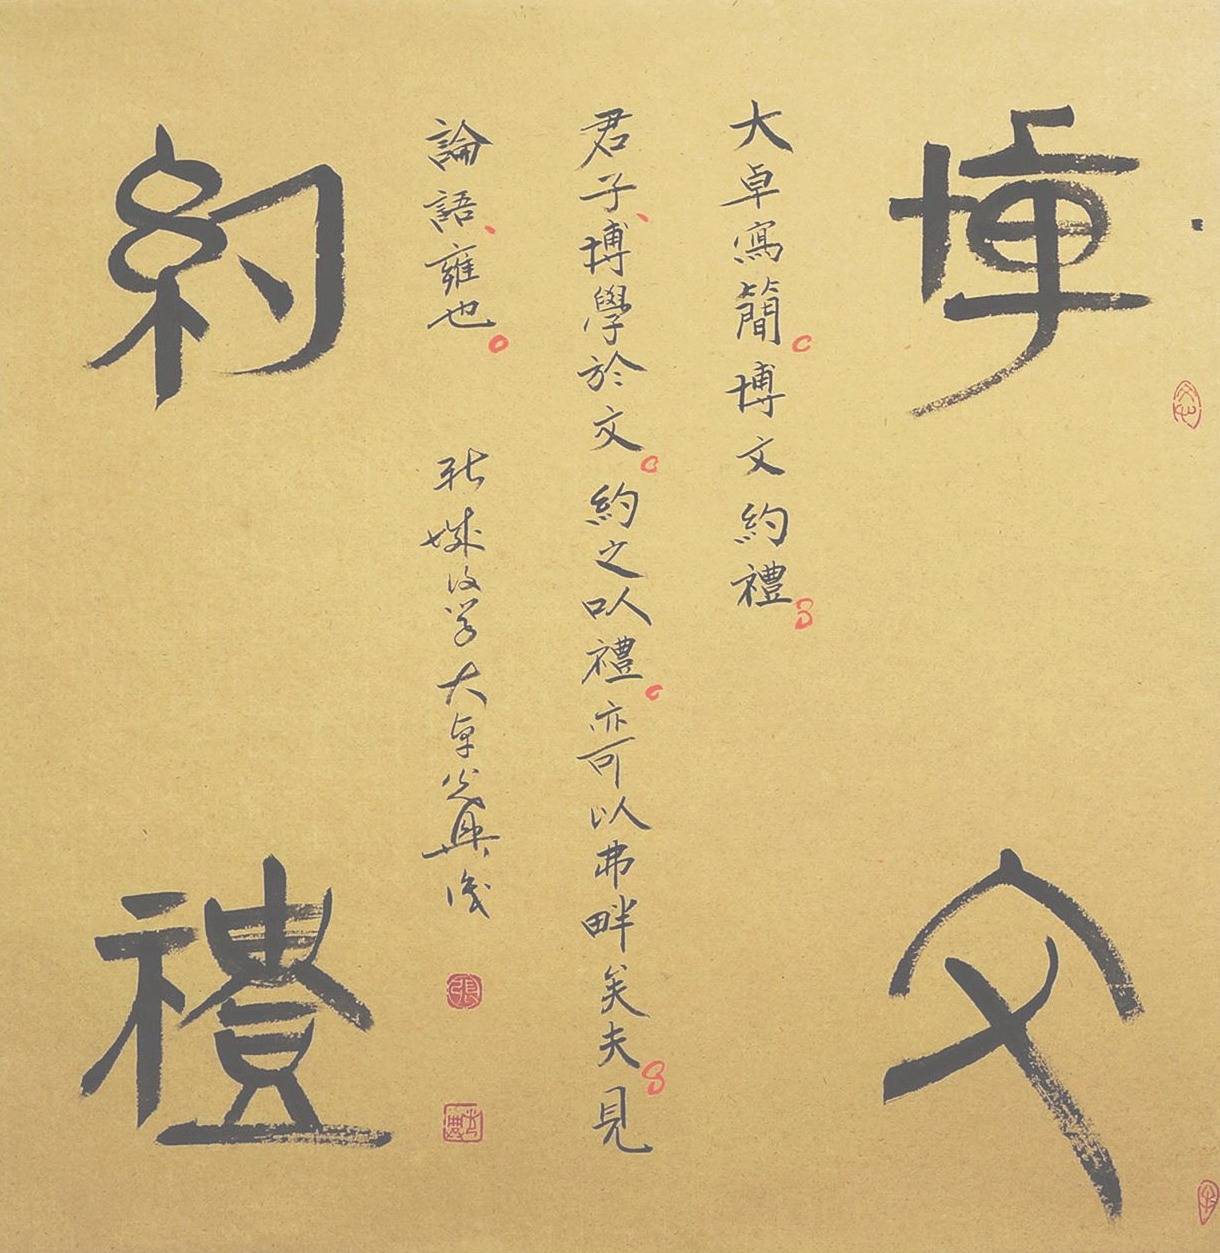 博文
大卓寫簡。博文約禮。
君子、博學於文。約之㕥禮。亦可以弗畔矣夫。見
論語、雍也。
大卓光典
張
約禮